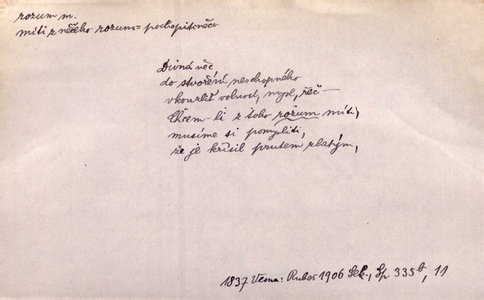 rozum m.
míti z něčeho rozum = pochopit něco
Divná věc,
do stvoření neschopného
vkouzlit volnost, mysl, řeč —
Chcem-li z toho rozum míti,
musíme si pomysliti,
že je křísil prutem zlatým,
1837 Rubeš 1906 Sp 335b, 11